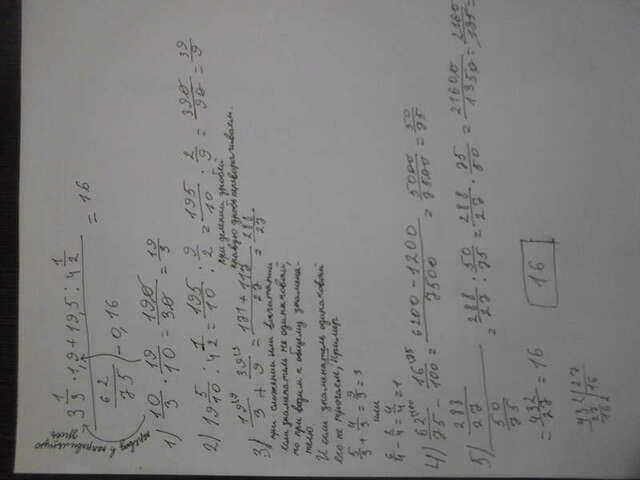 3 1/3 · 1,9 + 19,5 : 4 1/2
62/75 − 0,16
= 16
в неправильную
1) 10/3 · 19/10 = 190/30 = 19/3
2) 19 5/10 : 4 1/2 = 195/10 : 9/2 = 195/10 · 2/9 = 390/90 = 39/9
при делении дробей
правую дробь переворачиваем.
3) 19/3 + 39/9 = 171 + 117/27 = 288/27
при сложении или вычитании
если знаменатель не одинаковый,
то приводим к общему знамена-
телю.
И если знаменатель одинаковый
его не трогаем, Пример
5/3 + 4/3 = 9/3 = 3
или
8/4 − 4/4 = 4/4 = 1
4) 62/75 − 16/100 = 6200 − 1200/7500 = 5000/7500 = 50/75
5) 288/27 / 50/75 = 288/27 : 50/75 = 288/27 · 75/50 = 21600/1350 = 2160/135 =
= 432/27 = 16
16
432 27
27 16
162